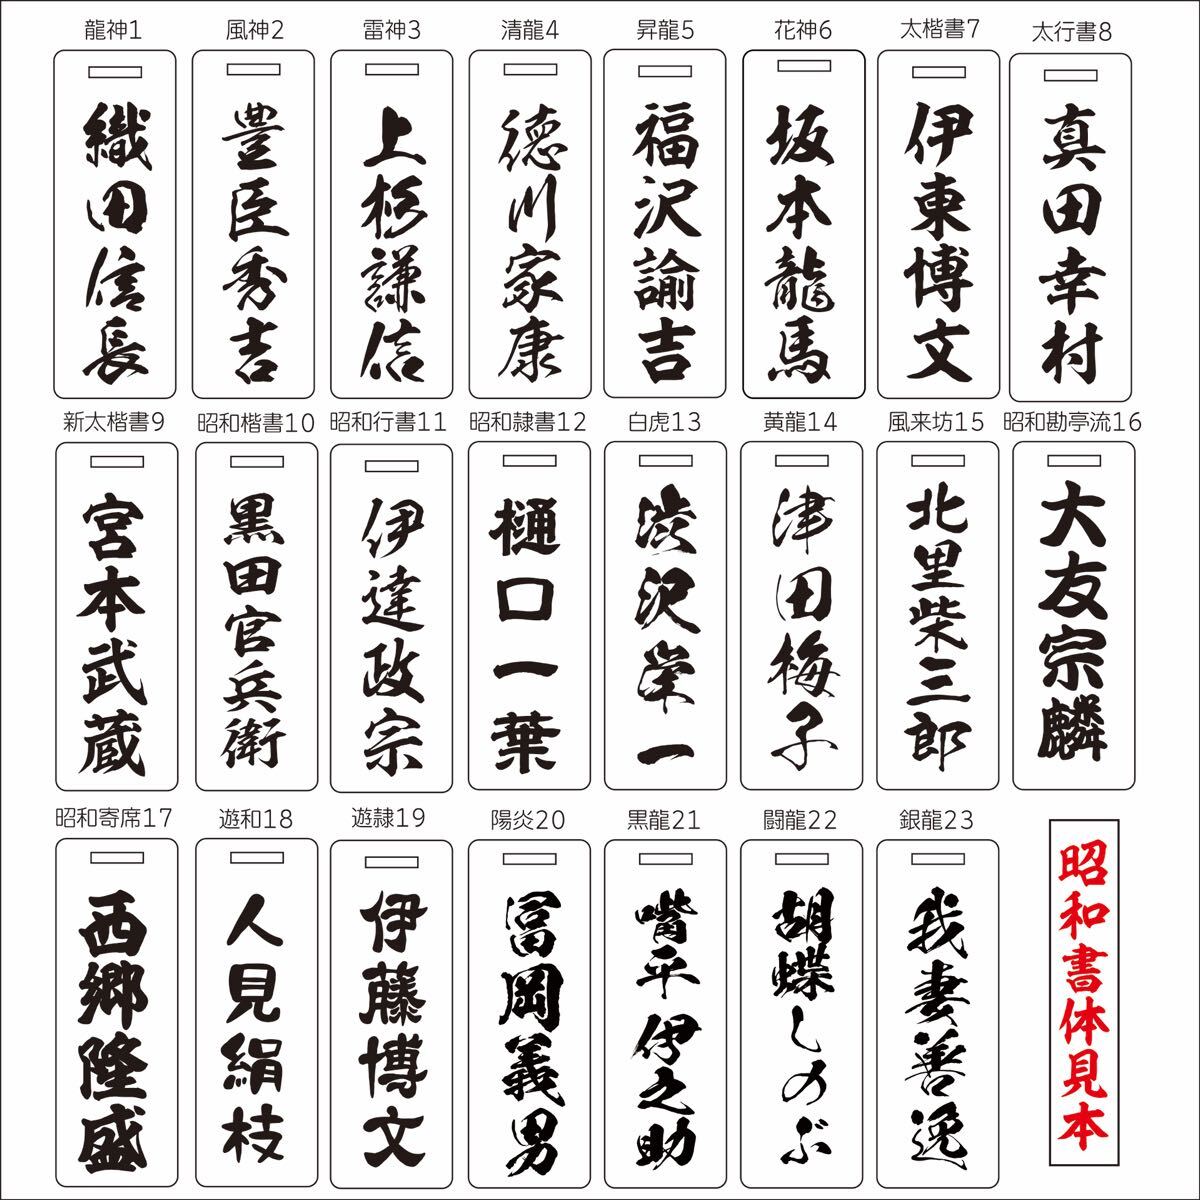 龍神1
織田信長
風神2
豊臣秀吉
雷神3
上杉謙信
清龍4
徳川家康
昇龍5
福沢諭吉
花神6
坂本龍馬
太楷書7
伊東博文
太行書8
真田幸村
新太楷書9
宮本武蔵
昭和楷書10
黒田官兵衛
昭和行書11
伊達政宗
昭和隷書12
樋口一葉
白虎13
渋沢栄一
黄龍14
津田梅子
風来坊15
北里柴三郎
昭和勘亭流16
大友宗麟
昭和寄席17
西郷隆盛
遊和18
人見絹枝
遊隷19
伊藤博文
陽炎20
冨岡義男
黒龍21
嘴平伊之助
闘龍22
胡蝶しのぶ
銀龍23
我妻善逸
昭和書体見本